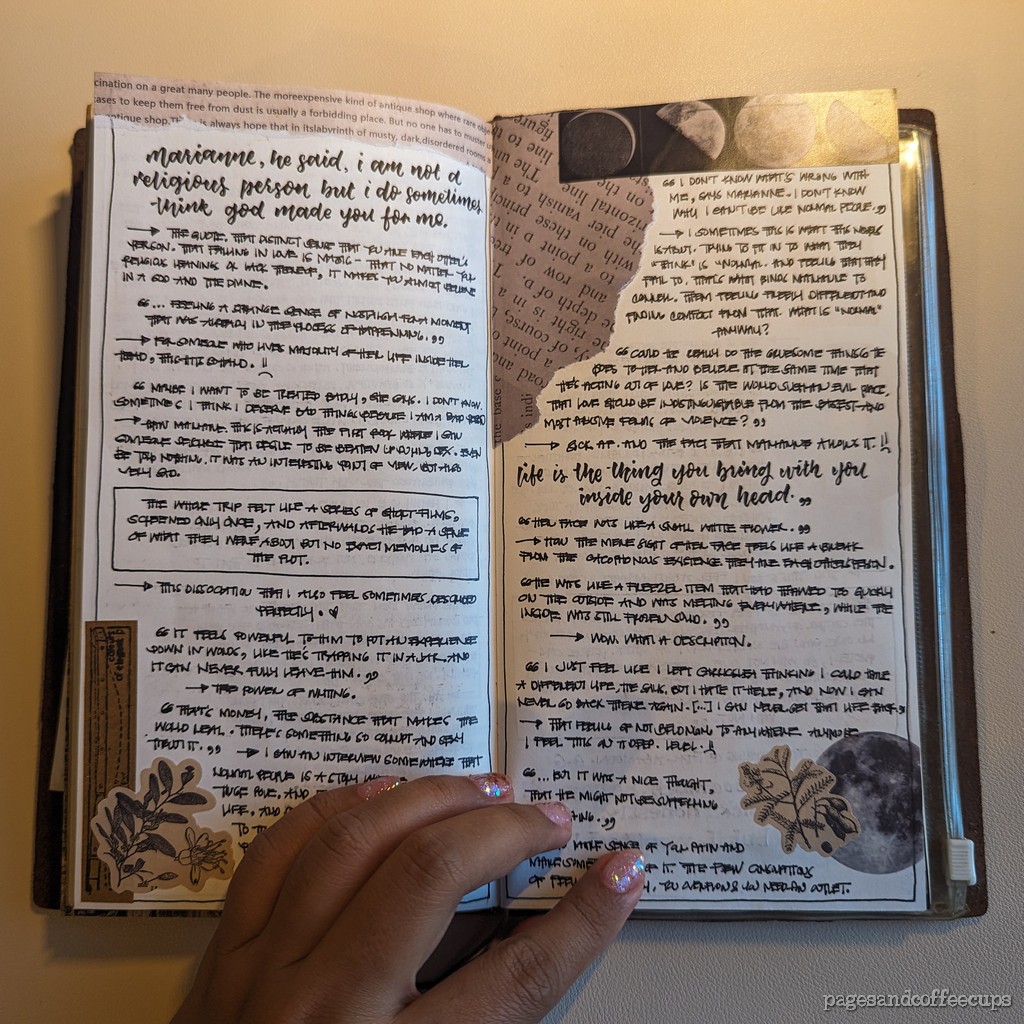 cination on a great many people. The moreexpensive kind of antique shop where rare obje
ases to keep them free from dust is usually a forbidding place. But no one has to muster u
antique shop. is always hope that in itslabyrinth of musty, dark,disordered rooms a
marianne, he said, i am not a
religious person but i do sometimes
think god made you for me.
→ THE QUOTE. THAT DISTINCT SENSE THAT YOU ARE EACH OTHER'S
PERSON. THAT FALLING IN LOVE IS MAGIC - THAT NO MATTER YOUR
RELIGIOUS LEANINGS OR LACK THEREOF, IT MAKES YOU ALMOST BELIEVE
IN A GOD AND THE DIVINE.
"... FEELING A STRANGE SENSE OF NOSTALGIA FOR A MOMENT
THAT WAS ALREADY IN THE PROCESS OF HAPPENING."
→ FOR SOMEONE WHO LIVES MAJORITY OF HER LIFE INSIDE HER
HEAD, THIS HITS SO HARD. !!
"MAYBE I WANT TO BE TREATED BADLY, SHE SAYS. I DON'T KNOW.
SOMETIMES I THINK I DESERVE BAD THINGS BECAUSE I AM A BAD PERSON
→ MARIANNE. THIS IS ACTUALLY THE FIRST BOOK WHERE I CAN
SOMEONE DESIRE TO BE BEATEN UP DURING SEX. EVEN
BE TOO NOTHING. IT WAS AN INTERESTING POINT OF VIEW. BUT ALSO
VERY SAD.
THE WHOLE TRIP FELT LIKE A SERIES OF SHORT FILMS,
SCREENED ONLY ONCE, AND AFTERWARDS HE HAD A SENSE
OF WHAT THEY WERE ABOUT BUT NO EXACT MEMORIES OF
THE PLOT.
→ THIS DISSOCIATION THAT I ALSO FEEL SOMETIMES. DESCRIBED
PERFECTLY. ♥
"IT FEELS POWERFUL TO HIM TO PUT AN EXPERIENCE
DOWN IN WORDS, LIKE HE'S TRAPPING IT IN A JAR, AND
IT CAN NEVER FULLY LEAVE HIM."
→ THE POWER OF WRITING.
"THAT'S MONEY, THE SUBSTANCE THAT MAKES THE
WORLD REAL. THERE'S SOMETHING SO CORRUPT AND SEXY
ABOUT IT." → I SAW AN INTERVIEW SOMEWHERE THAT
NORMAL PEOPLE IS A STORY
HUGE ROLE, AND
LIFE. AND
TO
figure
line to
The un
vanish to a p
rizontal line
on these princip
pier
with
to a point
row of
and
depth of a
right is in a
of course,
a point o
oad and
the base
s indi
"I DON'T KNOW WHAT'S WRONG WITH
ME, SAYS MARIANNE. I DON'T KNOW
WHY I CAN'T BE LIKE NORMAL PEOPLE."
→ I SOMETIMES THIS IS WHAT THIS NOVEL
IS ABOUT. TRYING TO FIT IN TO WHAT THEY
"THINK" IS "NORMAL". AND FEELING THAT THEY
FAIL TO. THAT'S WHAT BINDS MARIANNE TO
CONNELL. THEM FEELING FREELY DIFFERENT AND
FINDING COMFORT FROM THAT. WHAT IS "NORMAL"
ANYWAY?
"COULD HE REALLY DO THE GRUESOME THINGS HE
DOES TO HER AND BELIEVE AT THE SAME TIME THAT
HE'S ACTING OUT OF LOVE? IS THE WORLD SUCH AN EVIL PLACE,
THAT LOVE SHOULD BE INDISTINGUISHABLE FROM THE BASEST AND
MOST ABUSIVE FORMS OF VIOLENCE?"
→ SICK AF. AND THE FACT THAT MARIANNE ALLOWS IT. !!
life is the thing you bring with you
inside your own head."
"HER FACE WAS LIKE A SMALL WHITE FLOWER."
→ HOW THE MERE SIGHT OF HER FACE FEELS LIKE A BREAK
FROM THE CACOPHONOUS EXISTENCE. THEY ARE EACH OTHER'S PERSON.
"HE WAS LIKE A FREEZER ITEM THAT HAD THAWED TOO QUICKLY
ON THE OUTSIDE AND WAS MELTING EVERYWHERE, WHILE THE
INSIDE WAS STILL FROZEN SOLID."
→ WOW. WHAT A DESCRIPTION.
"I JUST FEEL LIKE I LEFT CARRICKLEA THINKING I COULD HAVE
A DIFFERENT LIFE, HE SAYS. BUT I HATE IT HERE, AND NOW I CAN
NEVER GO BACK THERE AGAIN. [...] I CAN NEVER GET THAT LIFE BACK."
→ THAT FEELING OF NOT BELONGING TO ANYWHERE ANYMORE
I FEEL THIS ON A DEEP LEVEL. !!
"... BUT IT WAS A NICE THOUGHT,
THAT HE MIGHT NOT BE SUFFERING
HING."
MAKE SENSE OF YOUR PAIN AND
MAKE SOME OF IT. THE RAW
OF , YOU AN OUTLET.
pagesandcoffeecups